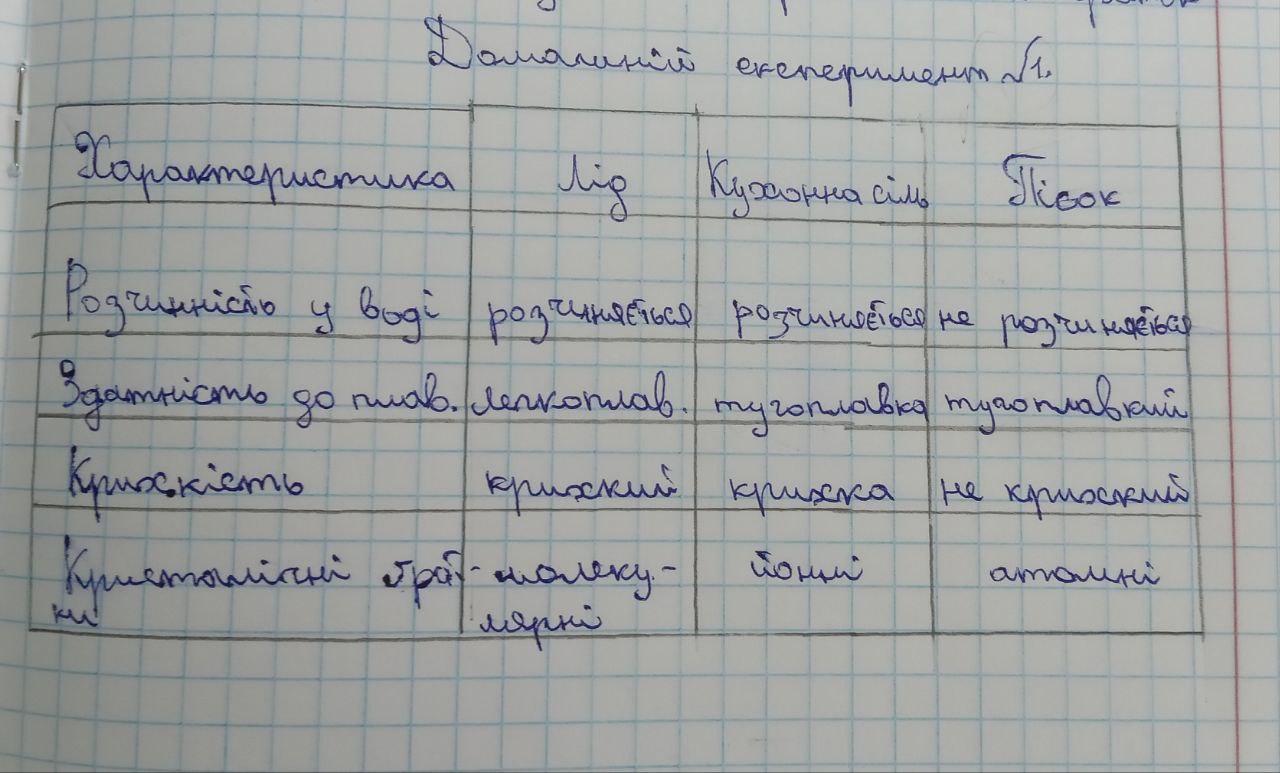 Домашній експеримент №1.
Характеристика Лід Кухонна сіль Пісок
Розчинність у воді розчиняється розчиняється не розчиняється
Здатність до плав. легкоплав. тугоплавка тугоплавкий
Крихкість крихкий крихка не крихкий
Кристалічні ґрат- молеку- йонні атомні
ки лярні